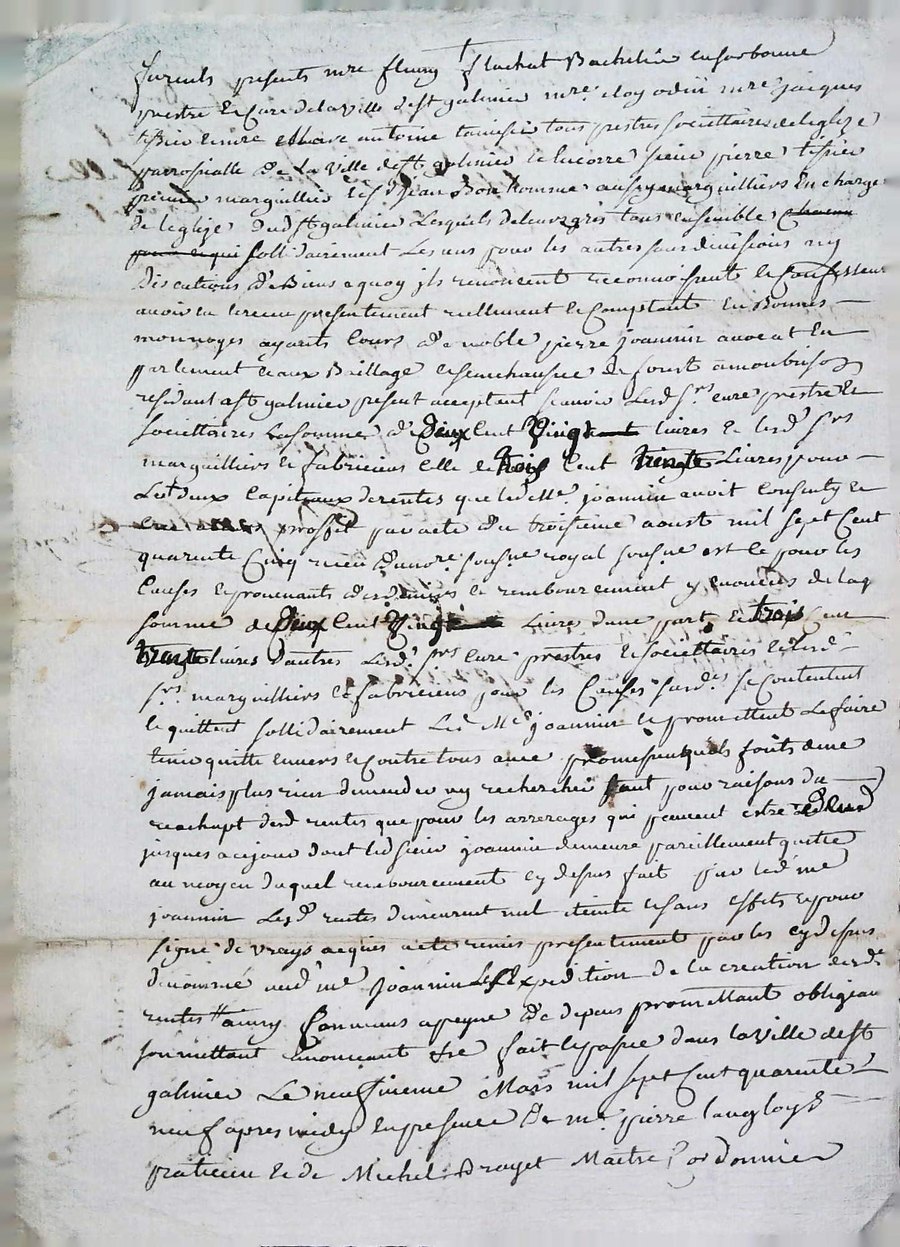 furents presents mre fleury flachat Bachelier en sorbonne
prestre & Cure de la ville de st galmier mre eloy odin mre jacques
tissier & mre antoine tous prestres societtaires de leglize
parrossialle de la ville de st galmier & sieur pierre tissier
premier marguillier & sr jean Bonhomme aussy marguilliers En charge
de leglize dud st galmier Lesquels de leurs grés tous ensemble
sollidairement Les uns pour les autres sans divisions ny
discutions de Biens a quoy ils renoncent reconnoissent & Confessent
avoir eu & receu presentement reellement & Comptant En Bonnes
monnoyes ayants Cours de noble pierre joannin avocat En
parlement & aux Baillage & senechaussee de forest a monbrison
residant a st galmier present acceptant scavoir Lesd srs cure prestre &
societtaires La somme de Deux Cent Vingt livres & lesd srs
marguilliers & fabriciens Celle de trois Cent trente Livres pour
Les deux Capitaux de rentes que led Me joannin avoit Consenty &
proffit par acte du troisieme aoust mil sept Cent
quarente Cinq receu par nore sousne royal sousne est ce pour les
Causes & provenants & rembourcement y enoncées de laq
somme de Deux Cent Vingt Livre dune part & trois Cent
trente livres dautres Lesd srs cure prestres & societtaires & lesd
srs marguilliers & fabriciens pour les Causes susdes se Contentent
& quittent sollidairement Led Me joannin & promettent Le faire
tenir quitte envers & Contre tous avec promesse quils font de ne
jamais plus rien demender ny rechercher tant pour raisons du
reachapt desd rentes que pour les arrerages qui peuvent estre
jusques a ce jour dont led sieur joannin demeure pareillement quitte
au moyen duquel rembourcement cy depus fait par led me
joannin Lesd rentes demeurent nul eteinte & sans effets & pour
signe de vrays acquis a ete remis presentement par les cy depus
denommé aud me joannin Lexpedition de la creation desd
rentes ainsy Convenus a peyne de depens promettant obligeant
soumettant renonceant &re fait & passe dans la ville de st
galmier Le neufvieme Mars mil sept Cent quarente
neuf apres midy En presence de mre pierre langloys
praticien & de Michel Drayet Maitre Cordonnier